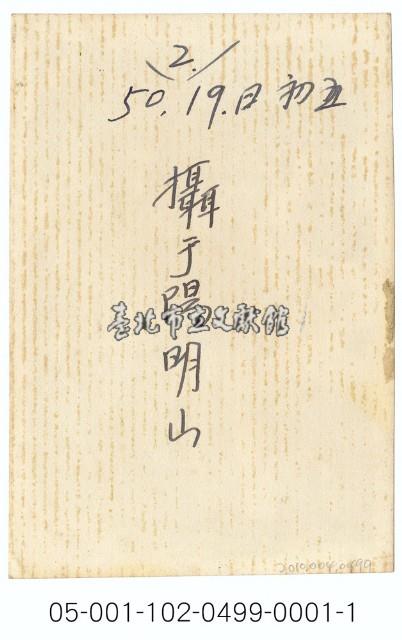 2.
50.19.日初五
攝于陽明山
臺北市立文獻館
2010.004.0499
05-001-102-0499-0001-1